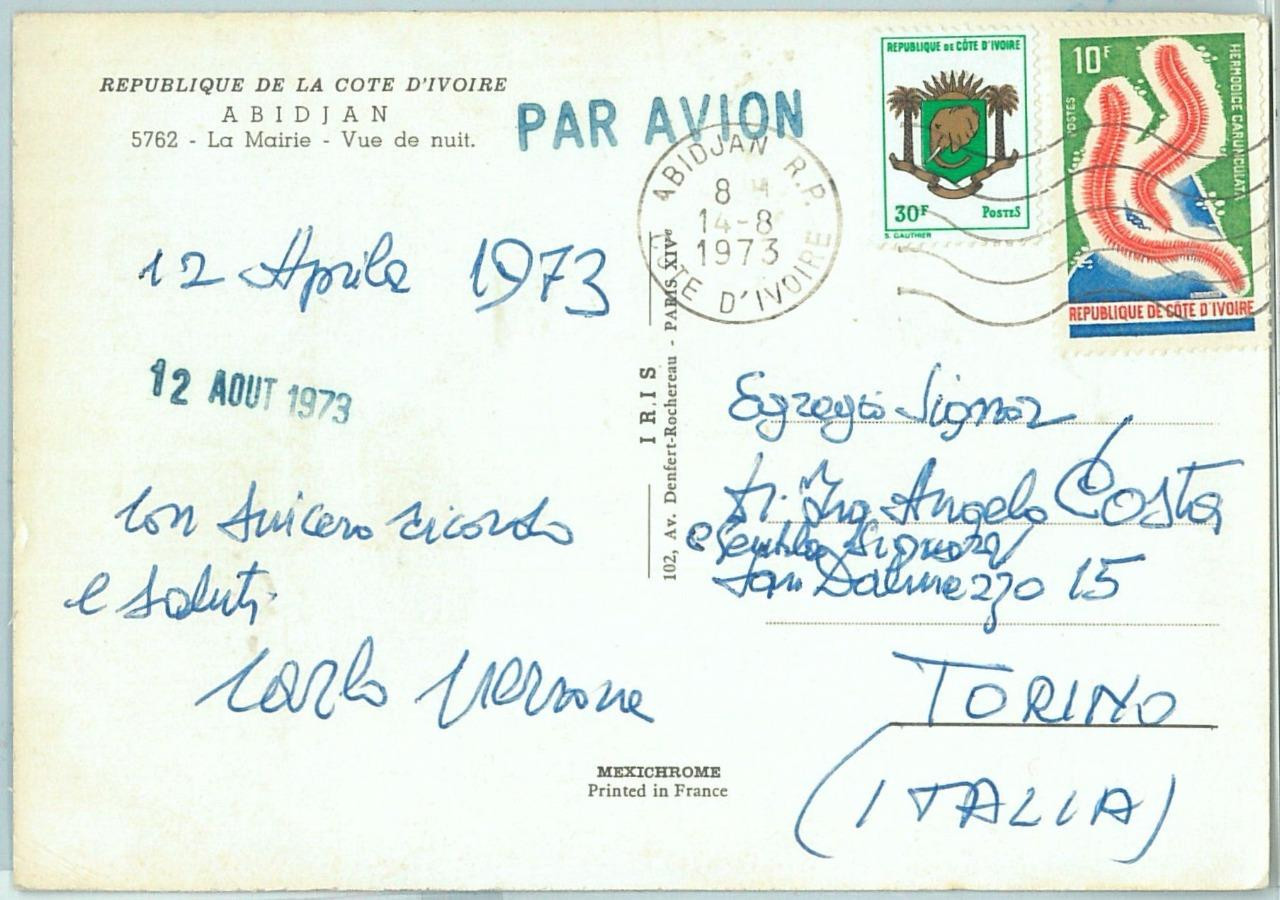 REPUBLIQUE DE LA COTE D'IVOIRE
ABIDJAN
5762 - La Mairie - Vue de nuit.
PAR AVION
ABIDJAN R.P.
8 H
14-8
1973
CÔTE D'IVOIRE
REPUBLIQUE DE CÔTE D'IVOIRE
30F POSTES
S. GAUTHIER
10F
POSTES
HERMODICE CARUNCULATA
REPUBLIQUE DE CÔTE D'IVOIRE
12 Aprile 1973
12 AOUT 1973
con sincero ricordo
e saluti
Carlo
IRIS
102, Av. Denfert-Rochereau - PARIS XIVe
Egregio Signor
Dr. Ing Angelo Costa
e Gentile Signora
San Dalmazzo 15
TORINO
(ITALIA)
MEXICHROME
Printed in France